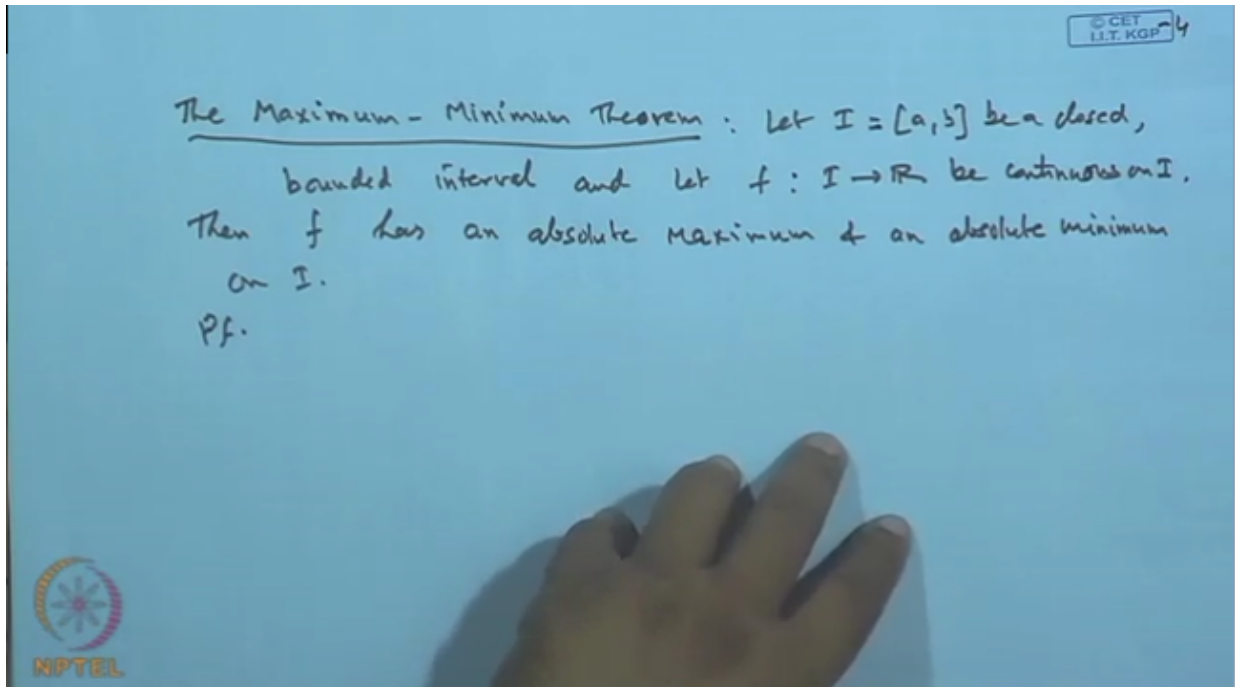 © CET
I.I.T. KGP -4
The Maximum - Minimum Theorem : Let I = [a, b] be a closed,
bounded interval and let f : I → R be continuous on I.
Then f has an absolute maximum & an absolute minimum
on I.
Pf.
NPTEL